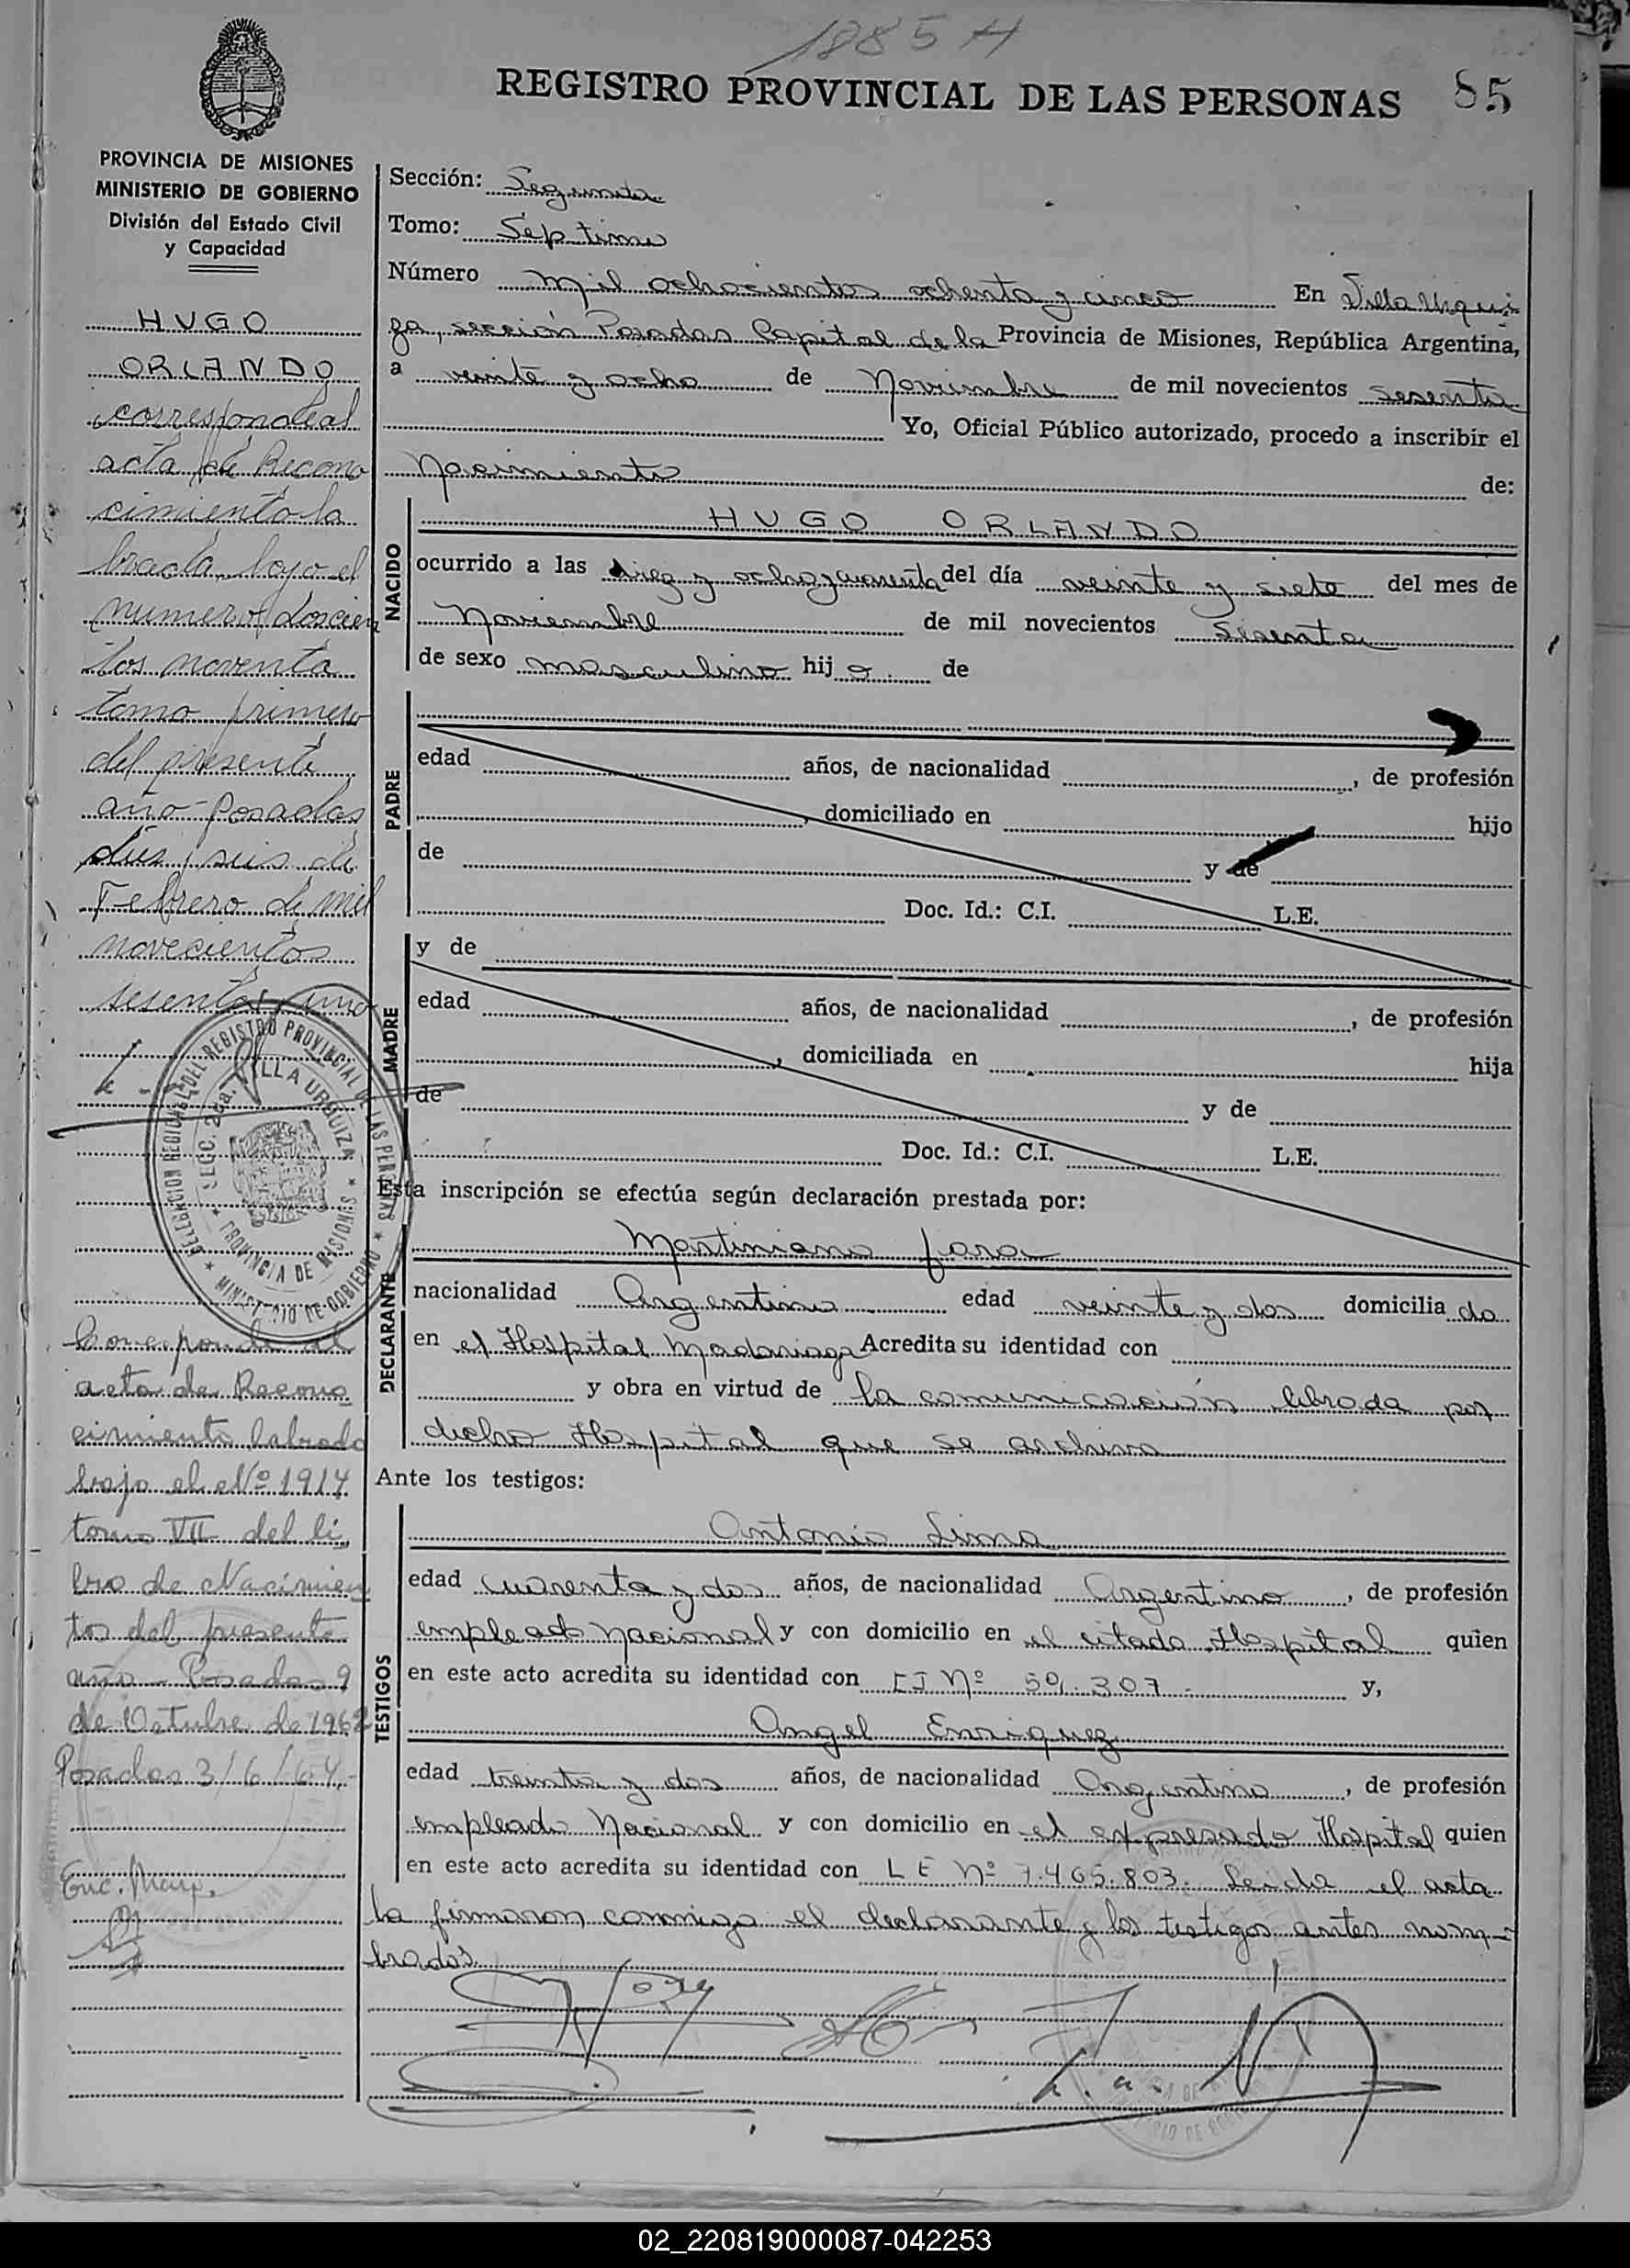 1885 H
REGISTRO PROVINCIAL DE LAS PERSONAS 85
PROVINCIA DE MISIONES
MINISTERIO DE GOBIERNO
División del Estado Civil
y Capacidad
HUGO
ORLANDO
corresponde al
acta de Recono
cimiento la
brada bajo el
numero doscien
tos noventa
tomo primero
del presente
año - Posadas
dies y seis de
Febrero de mil
novecientos
sesenta y uno
DELEGACION REGIONAL DEL REGISTRO PROVINCIAL DE LAS PERSONAS
SECC. 2da. VILLA URQUIZA
PROVINCIA DE MISIONES
MINISTERIO DE GOBIERNO
Corresponde al
acta de Recono
cimiento labrado
bajo el Nº 1914
tomo VII del li
bro de Nacimien
tos del presente
año - Posadas 9
de Octubre de 1962
Posadas 3/6/64.-
Sección: Segunda
Tomo: Septimo
Número mil ochocientos ochenta y cinco En Villa Urqui
za, sección Posadas Capital de la Provincia de Misiones, República Argentina,
a veinte y ocho de Noviembre de mil novecientos sesenta
Yo, Oficial Público autorizado, procedo a inscribir el
Nacimiento de:
NACIDO
HUGO ORLANDO
ocurrido a las diez y ocho y cuarenta del día veinte y siete del mes de
Noviembre de mil novecientos sesenta
de sexo masculino hijo de
PADRE
edad años, de nacionalidad , de profesión
, domiciliado en hijo
de y de
Doc. Id.: C.I. L.E.
MADRE
y de
edad años, de nacionalidad , de profesión
, domiciliada en hija
de y de
Doc. Id.: C.I. L.E.
Esta inscripción se efectúa según declaración prestada por:
DECLARANTE
Martiniano Jara
nacionalidad Argentino edad veinte y dos domicilia do
en el Hospital Madariaga Acredita su identidad con
y obra en virtud de la comunicación librada por
dicho Hospital que se archiva
Ante los testigos:
TESTIGOS
Antonio Lima
edad cuarenta y dos años, de nacionalidad Argentino, de profesión
empleado Nacional y con domicilio en el citado Hospital quien
en este acto acredita su identidad con Nº 50.307 y,
Angel Enriquez
edad treinta y dos años, de nacionalidad Argentino, de profesión
empleado Nacional y con domicilio en el expresado Hospital quien
en este acto acredita su identidad con L E Nº 7.465.803. Leida el acta
la firmaron conmigo el declarante y los testigos antes nom-
brados
02_220819000087-042253